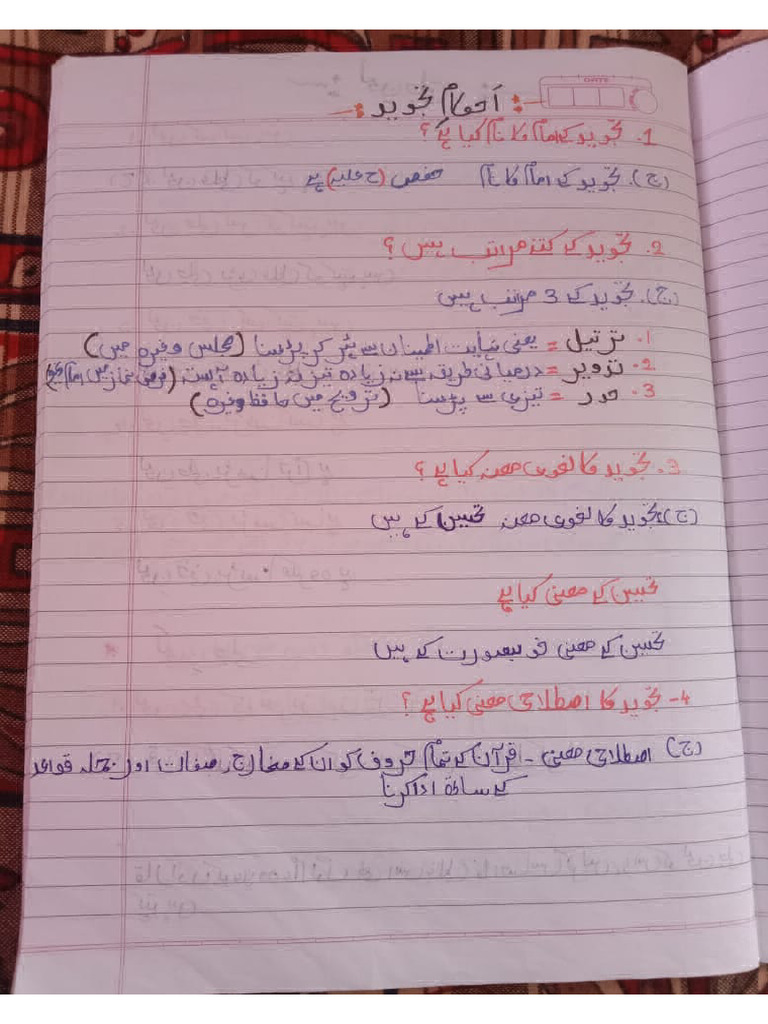 DATE
احکام تجوید
1. تجوید کے امام کا نام کیا ہے؟
(ج). تجوید کے امام کا نام حفص (ح علیہ) ہے
2. تجوید کے کتنے مراتب ہیں؟
(ج). تجوید کے 3 مراتب ہیں
1. ترتیل = یعنی نہایت اطمینان سے ٹہر کر پڑہنا (مجلس وغیرہ میں)
2. تزویر = درمیانی طریقہ سے نہ زیادہ تیز نہ زیادہ آہستہ (فرض نماز میں امام
3. حدر = تیزی سے پڑہنا (ترویح میں حافظ وغیرہ)
3. تجوید کا لغوی معنہ کیا ہے؟
(ج): تجوید کا لغوی معنہ تحیین کے ہیں
تحیین کے معنی کیا ہے
تحیین کے معنی خوبصورت کے ہیں
4- تجوید کا اصطلاحی معنی کیا ہے؟
(ج) اصطلاحی معنی - قرآن کے تمام حروف کو ان کے مخارج، صفات اور جملہ قواعد
کے ساتھ ادا کرنا